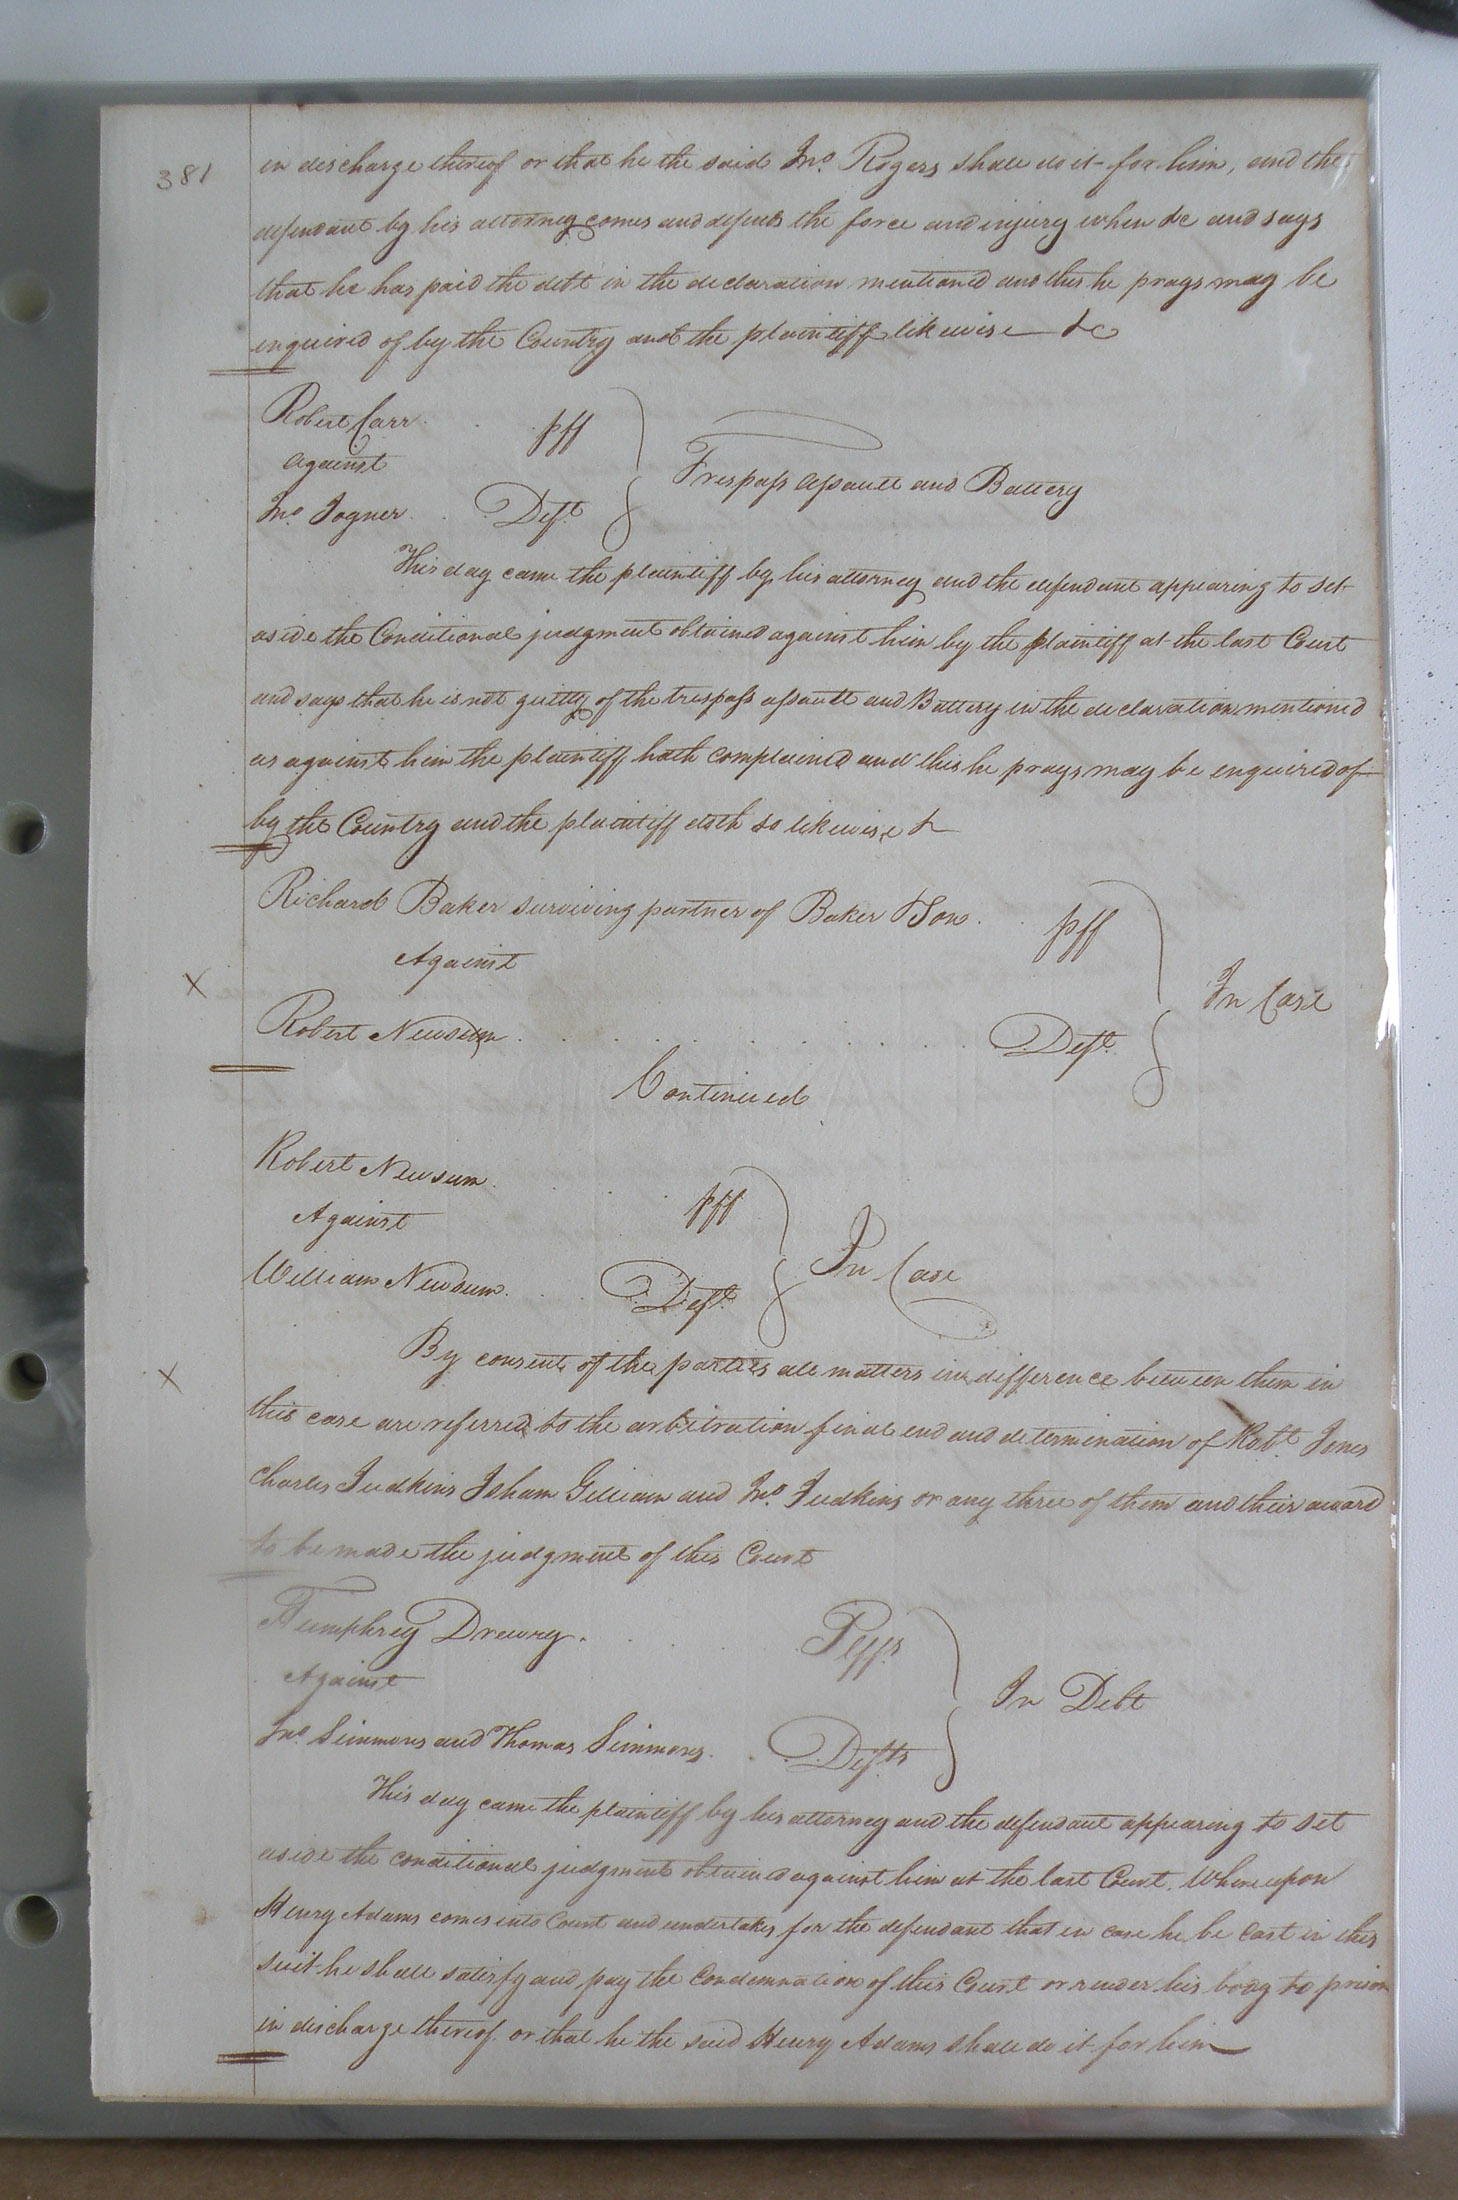 381
in discharge thereof or that he the said Jno. Rogers shall do it for him, and the
defendant by his attorney comes and defends the force and injury when &c and says
that he has paid the debt in the declaration mentioned and this he prays may be
enquired of by the Country and the plaintiff likewise &c
Robert Carr plff
against
Jno. Joyner Deft.
Trespass assault and Battery
This day came the plaintiff by his attorney and the defendant appearing to set
aside the Conditional judgment obtained against him by the plaintiff at the last Court
and says that he is not guilty of the trespass assault and Battery in the declaration mentioned
as against him the plaintiff hath complained and this he prays may be enquired of
by the Country and the plaintiff doth so likewise &
Richard Baker surviving partner of Baker & Son plff
Against
X
In Case
Robert Newsum Deft.
Continued
Robert Newsum plff
Against
In Case
William Newsum Deft.
X
By consent of the parties all matters in difference between them in
this case are referred to the arbitration final end and determination of Robt. Jones
Charles Judkins Isham Gilliam and Jno. Judkins or any three of them and their award
to be made the judgment of this Court
Humphrey Drewry Plffs
Against
In Debt
Jno. Simmons and Thomas Simmons Defts
This day came the plaintiff by his attorney and the defendant appearing to set
aside the conditional judgment obtained against him at the last Court. Whereupon
Henry Adams comes into Court and undertakes for the defendant that in case he be cast in this
suit he shall satisfy and pay the Condemnation of this Court or render his body to prison
in discharge thereof or that he the said Henry Adams shall do it for him